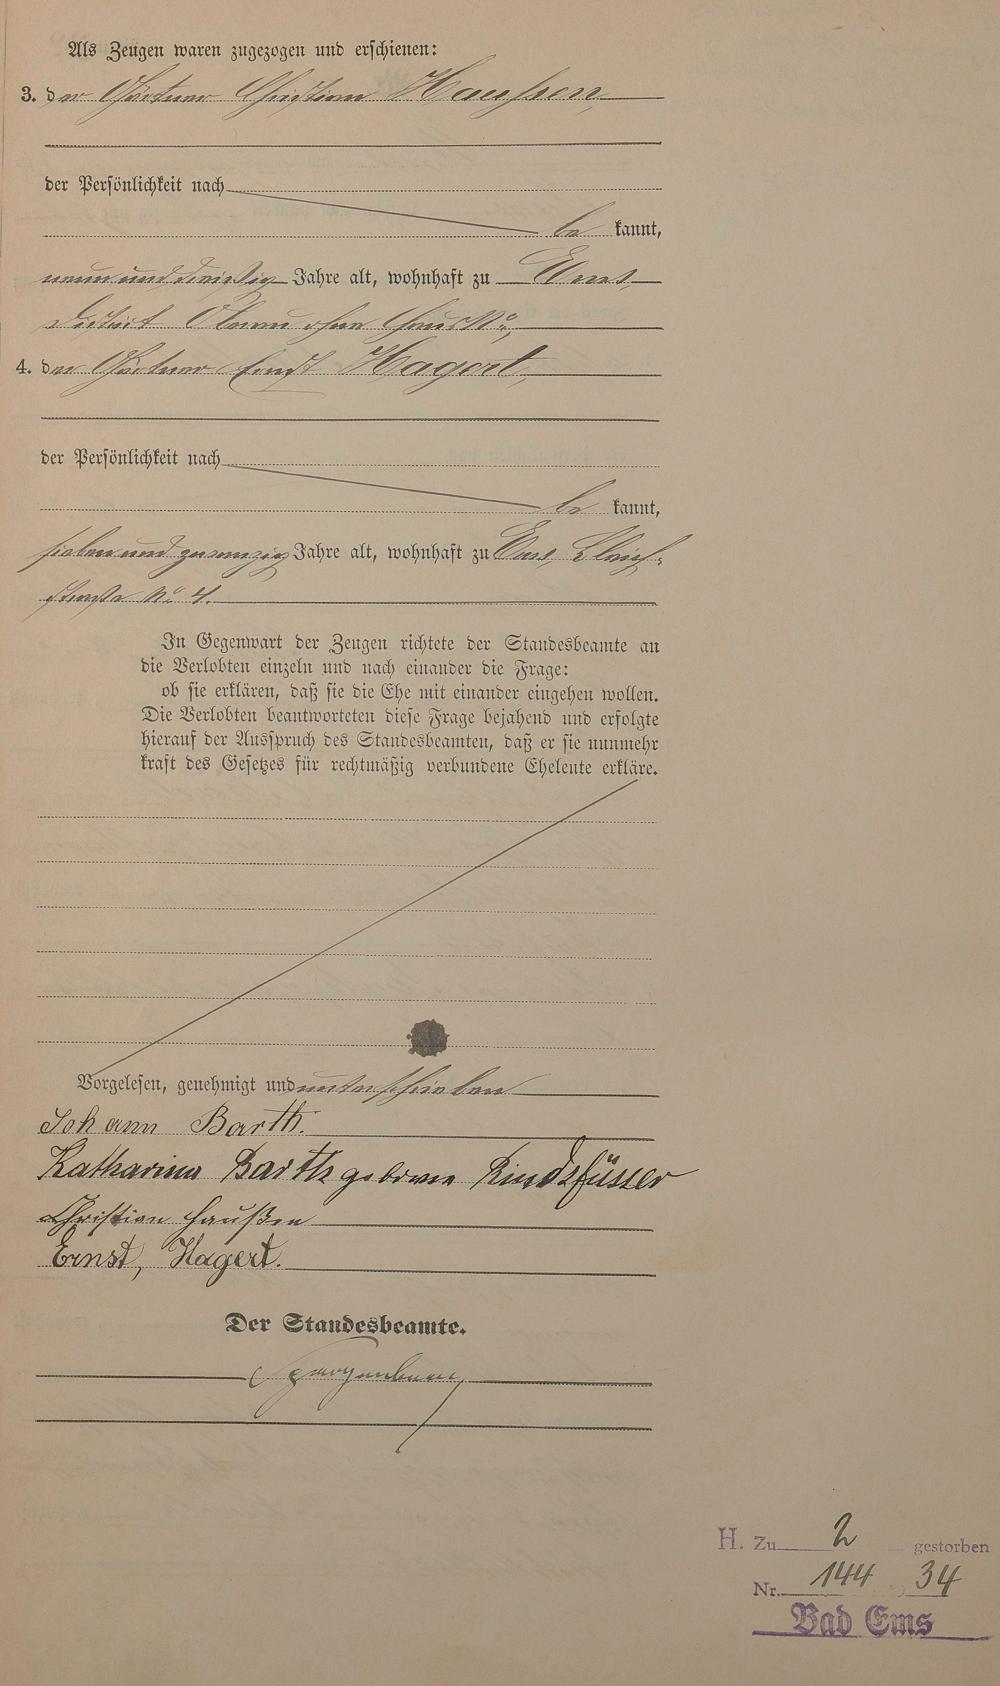 Als Zeugen waren zugezogen und erschienen:
3. der Gärtner Christian Haußen,
der Persönlichkeit nach
be kannt,
neun und dreißig Jahre alt, wohnhaft zu Ems,
District Oberau ohne Haus No.,
4. der Gärtner Ernst Hagert,
der Persönlichkeit nach
be kannt,
sieben und zwanzig Jahre alt, wohnhaft zu Ems, Bleich-
straße No 4.
In Gegenwart der Zeugen richtete der Standesbeamte an
die Verlobten einzeln und nach einander die Frage:
ob sie erklären, daß sie die Ehe mit einander eingehen wollen.
Die Verlobten beantworteten diese Frage bejahend und erfolgte
hierauf der Ausspruch des Standesbeamten, daß er sie nunmehr
kraft des Gesetzes für rechtmäßig verbundene Eheleute erkläre.
Vorgelesen, genehmigt und unterschrieben
Johann Barth.
Katharina Barth geborene Rindsfüsser
Christian Haußen
Ernst, Hagert.
Der Standesbeamte.
H. Zu 2 gestorben
Nr. 144 34
Bad Ems